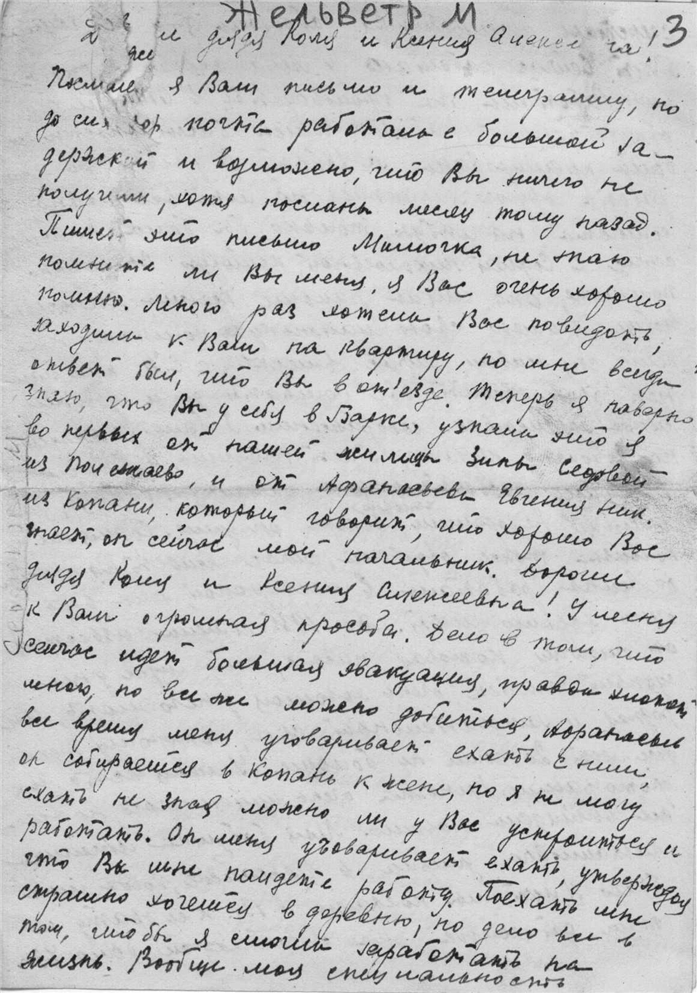 Жельветр М.
3
дядя Коля и Ксения Алексе на!
я Вам письмо и телеграмму, но
до сих пор почта работала с большой за-
держкой и возможно, что Вы ничего не
получили, хотя посланы месяц тому назад.
Пишет это письмо Милочка, не знаю
помните ли Вы меня, я Вас очень хорошо
помню. Много раз хотела Вас повидать,
заходила к Вам на квартиру, но мне всегда
ответ был, что Вы в от'езде. Теперь я наверно
знаю, что Вы у себя в Барке, узнала это я
во первых от нашей жилицы Зины Седовой
из Полежаево, и от Афанасьева Евгения Ник.
из Копани, который говорит, что хорошо Вас
знает, он сейчас мой начальник. Дорогие
дядя Коля и Ксения Алексеевна! У меня
к Вам огромная просьба. Дело в том, что
сейчас идет большая эвакуация, правда хлопот
много, но все же можно добиться, Афанасьев
все время меня уговаривает ехать с ним,
он собирается в Копань к жене, но я не могу
ехать не зная можно ли у Вас устроиться и
работать. Он меня уговаривает ехать, утверждая
что Вы мне найдете работу. Поехать мне
страшно хочется в деревню, но дело все в
том, чтобы я смогла заработать на
жизнь. Вообще моя специальность